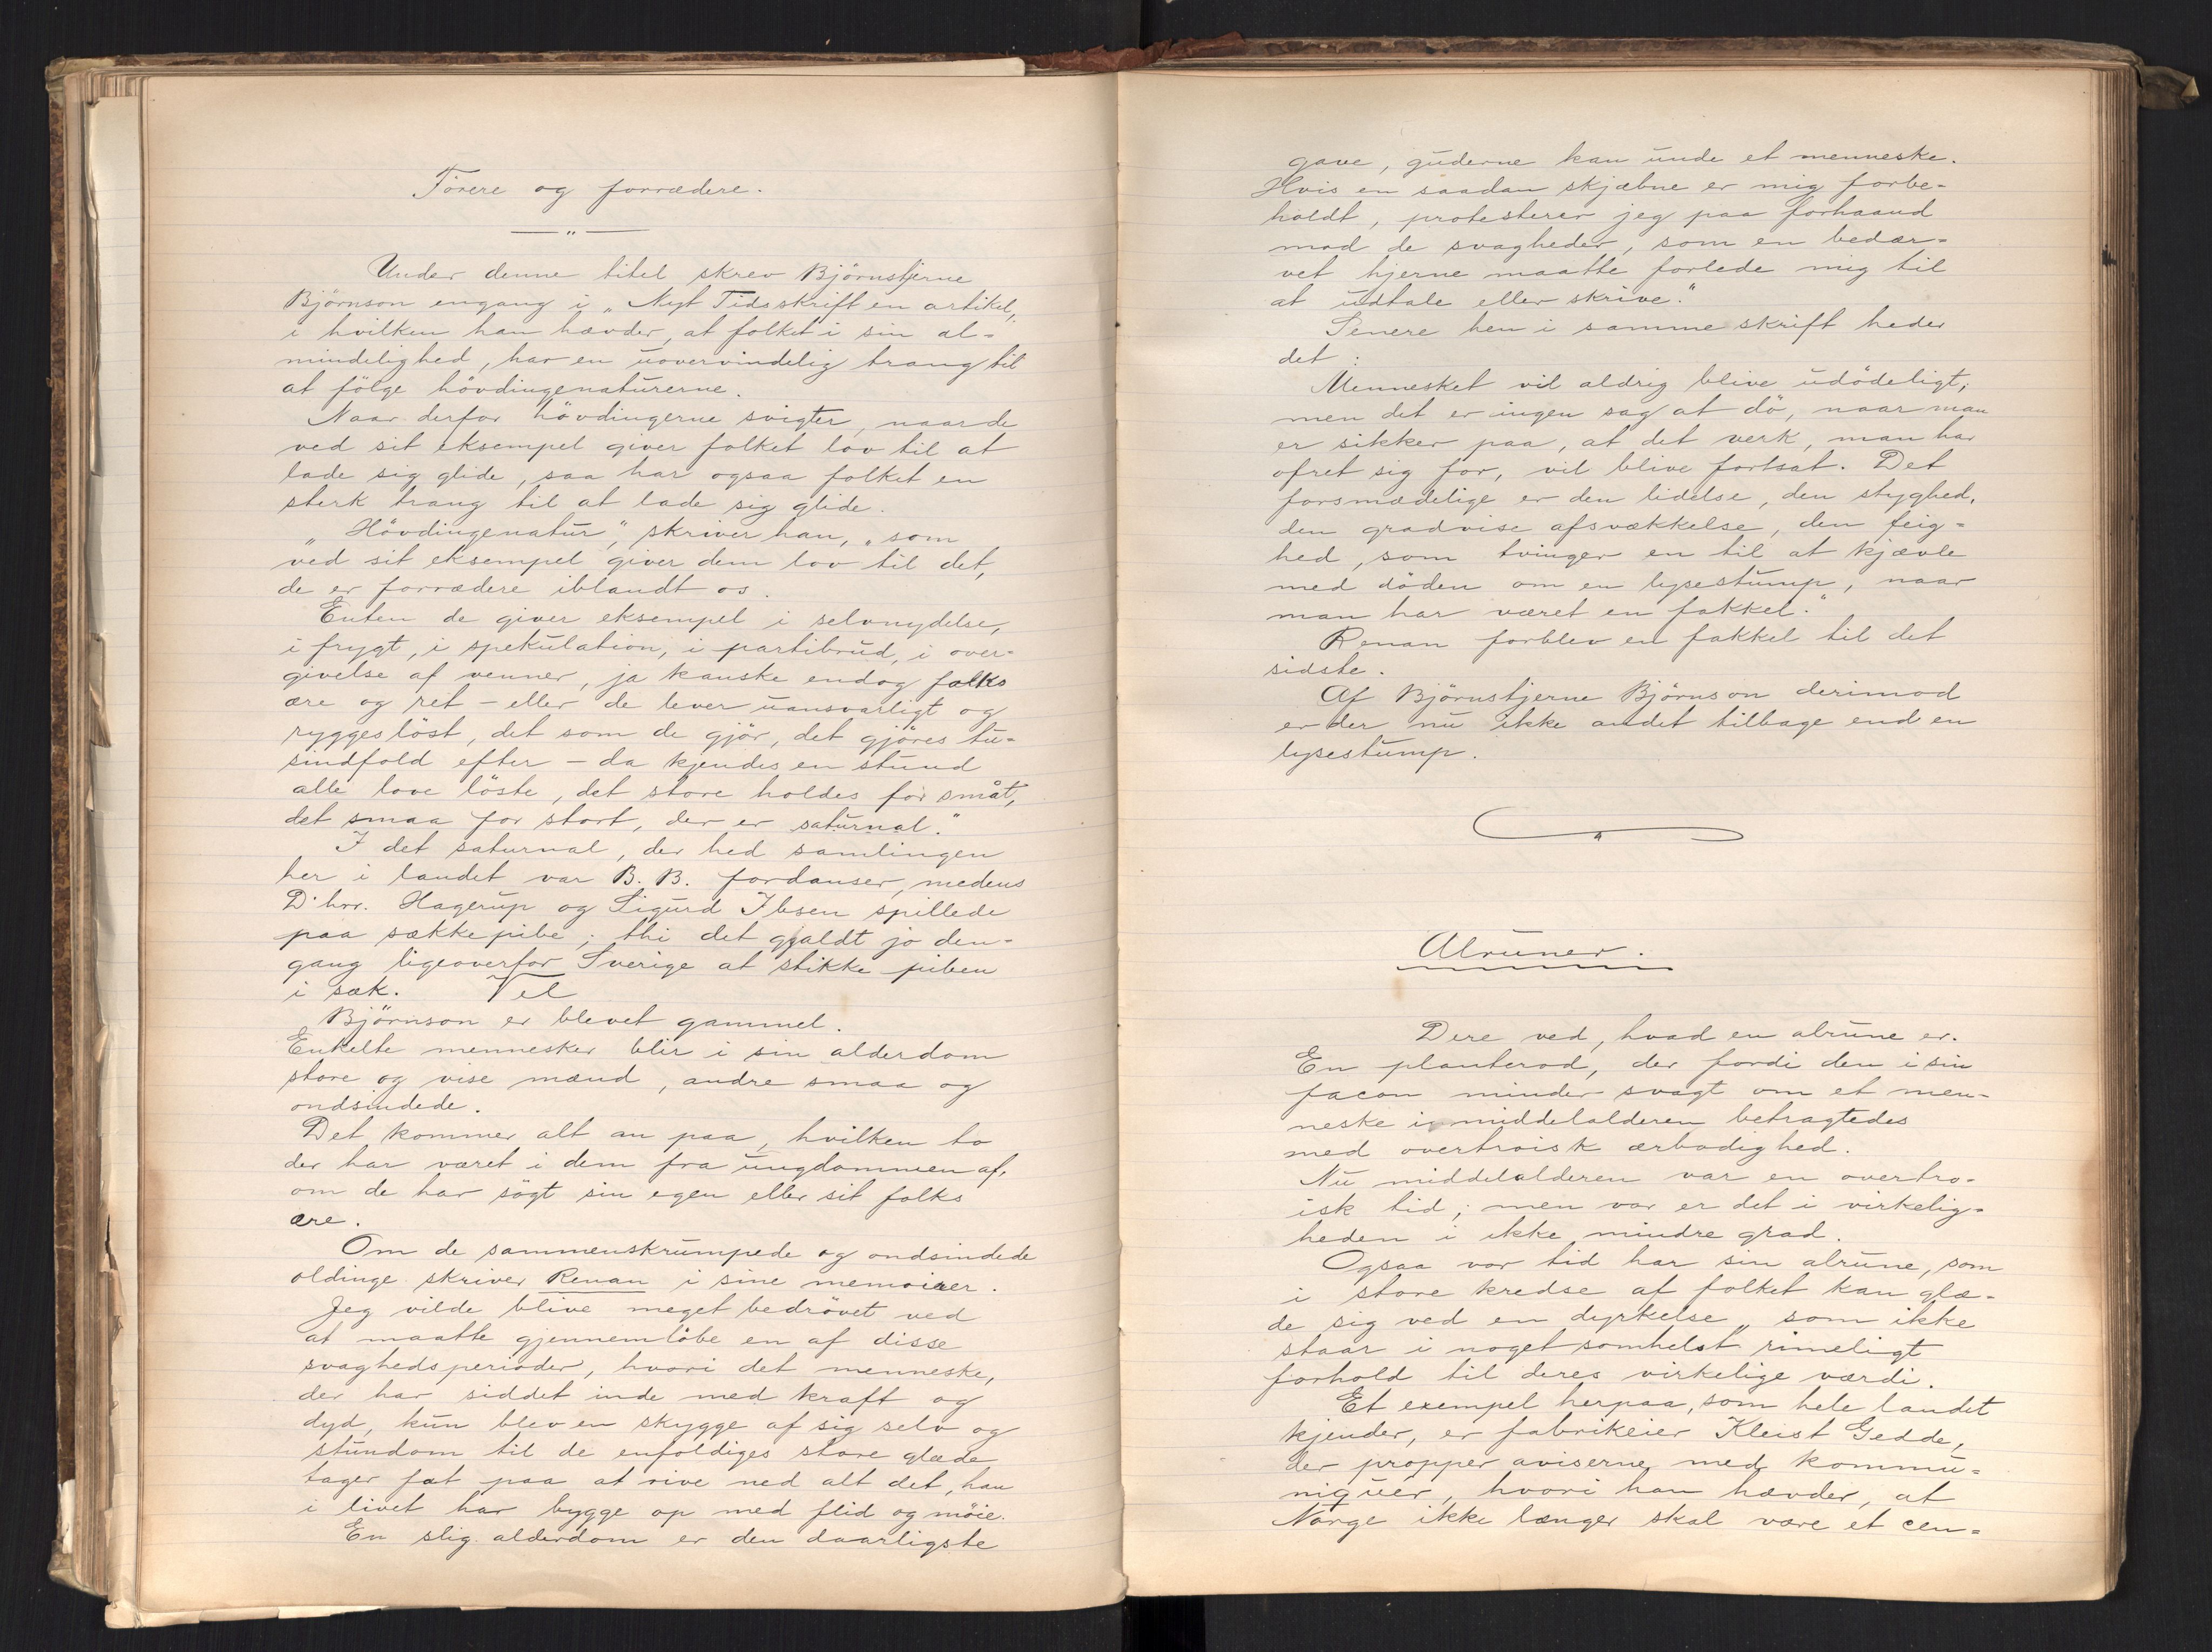 Förere og forrædere.
Under denne titel skrev Björnstjerne
Björnson engang i „Nyt Tidsskrift en artikel,"
i hvilken han hævder, at folket i sin al-
mindelighed, har en uovervindelig trang til
at fölge hövdingenaturerne.
Naar derfor hövdingerne svigter, naar de
ved sit eksempel giver folket lov til at
lade sig glide, saa har ogsaa folket en
sterk trang til at lade sig glide.
„Hövdingenatur", skriver han, „som
ved sit eksempel giver dem lov til det,
de er forrædere iblandt os.
Enten de giver eksempel i selvnydelse,
i frygt, i spekulation, i partibrud, i over-
givelse af venner, ja kanske endog folks
ære og ret – eller de lever uansvarligt og
ryggeslöst, det som de gjör, det gjöres tu-
sindfold efter – da kjendes en stund
alle love löste, det store holdes for småt,
det smaa for stort, der er saturnal."
I det saturnal, der hed samlingen
her i landet var B. B. fordanser, medens
D'hrr. Hagerup og Sigurd Ibsen spillede
paa sækkepibe; thi det gjaldt jo den-
gang ligeoverfor Sverige at stikke piben
i sæk. Vel
Björnson er blevet gammel.
Enkelte mennesker blir i sin alderdom
store og vise mænd, andre smaa og
ondsindede.
Det kommer alt an paa, hvilken to
der har været i dem fra ungdommen af,
om de har sögt sin egen eller sit folks
ære.
Om de sammenskrumpede og ondsindede
oldinge skriver Renan i sine memoirer.
Jeg vilde blive meget bedrövet ved
at maatte gjennemlöbe en af disse
svaghedsperioder, hvori det menneske,
der har siddet inde med kraft og
dyd, kun blev en skygge af sig selv og
stundom til de enfoldiges store glæde
tager fat paa at rive ned alt det, han
i livet har bygge op med flid og möie.
En slig alderdom er den daarligste
gave, guderne kan unde et menneske.
Hvis en saadan skjæbne er mig forbe-
holdt, protesterer jeg paa forhaand
mod de svagheder, som en bedær-
vet hjerne maatte forlede mig til
at udtale eller skrive."
Senere hen i samme skrift heder
det:
Mennesket vil aldrig blive udödeligt;
men det er ingen sag at dö, naar man
er sikker paa, at det verk, man har
ofret sig for, vil blive fortsat. Det
forsmædelige er den lidelse, den styghed,
den gradvise afsvækkelse, den feig-
hed, som tvinger en til at kjævle
med döden om en lysestump, naar
man har været en fakkel."
Renan forblev en fakkel til det
sidste.
Af Björnstjerne Björnson derimod
er der nu ikke andet tilbage end en
lysestump.
Alruner.
Dere ved, hvad en alrune er.
En planterod, der fordi den i sin
facon minder svagt om et men-
neske i middelalderen betragtedes
med overtroisk ærbødighed.
Nu middelalderen var en overtro-
isk tid; men vor er det i virkelig-
heden i ikke mindre grad.
Ogsaa vor tid har sin alrune, som
i store kredse af folket kan glæ-
de sig ved en dyrkelse, som ikke
staar i noget somhelst rimeligt
forhold til deres virkelige værdi.
Et exempel herpaa, som hele landet
kjender, er fabrikeier Kleist Gedde,
der propper aviserne med kommu-
niquér, hvori han hævder, at
Norge ikke længer skal være et cen-